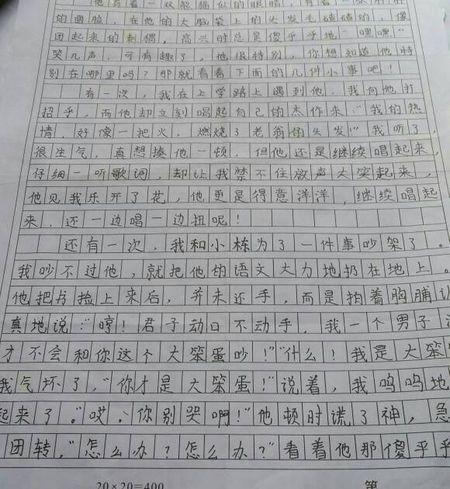 他有着一双熊猫似的眼睛，有着
的圆脸，在他的大脑袋上的头发毛碴碴的，像
团起来的刺猬，高兴时总是傻乎乎地"嘿嘿"
笑几声，可有趣了，他很特别，你想知道他特
别在哪里吗？那就看看下面的几件小事吧！
有一次，我在上学路上遇到他，我向他打
招乎，而他却立刻唱起自己的杰作来："我的热
情，好像一把火，燃烧了老爸的头发！"我听了
很生气，真想揍他一顿，但他还是继续唱起来，
仔细一听歌词，却让我禁不住放声大笑起来，
他见我乐开了花，他更是得意洋洋，继续唱起
来，还一边唱一边扭呢！
还有一次，我和小栋为了一件事吵架了。
我吵不过他，就把他的语文大力地扔在地上。
他把书捡上来后，并未还手，而是拍着胸脯认
真地说："哼！君子动口不动手，我一个男子
才不会和你这个大笨蛋吵！""什么！我是大笨
我气坏了，"你才是大笨蛋！"说着，我呜呜地
起来了。"哎，你别哭啊！"他顿时谎了神，急
团转，"怎么办？怎么办？"看着他那傻乎乎
20×20=400
第